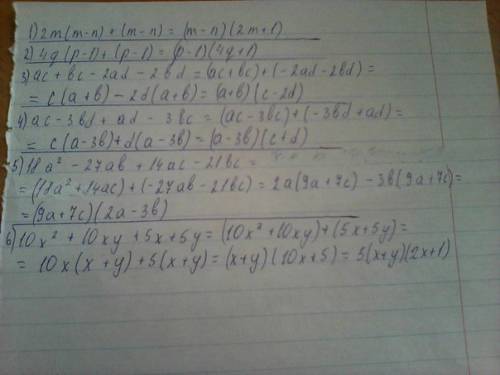 1) 2m(m-n)+(m-n)=(m-n)(2m+1)
2) 4q(p-1)+(p-1)=(p-1)(4q+1)
3) ac+bc-2ad-2bd=(ac+bc)+(-2ad-2bd)=
=c(a+b)-2d(a+b)=(a+b)(c-2d)
4) ac-3bd+ad-3bc=(ac-3bc)+(-3bd+ad)=
=c(a-3b)+d(a-3b)=(a-3b)(c+d)
5) 18a²-27ab+14ac-21bc=
=(18a²+14ac)+(-27ab-21bc)=2a(9a+7c)-3b(9a+7c)=
=(9a+7c)(2a-3b)
6) 10x²+10xy+5x+5y=(10x²+10xy)+(5x+5y)=
=10x(x+y)+5(x+y)=(x+y)(10x+5)=5(x+y)(2x+1)